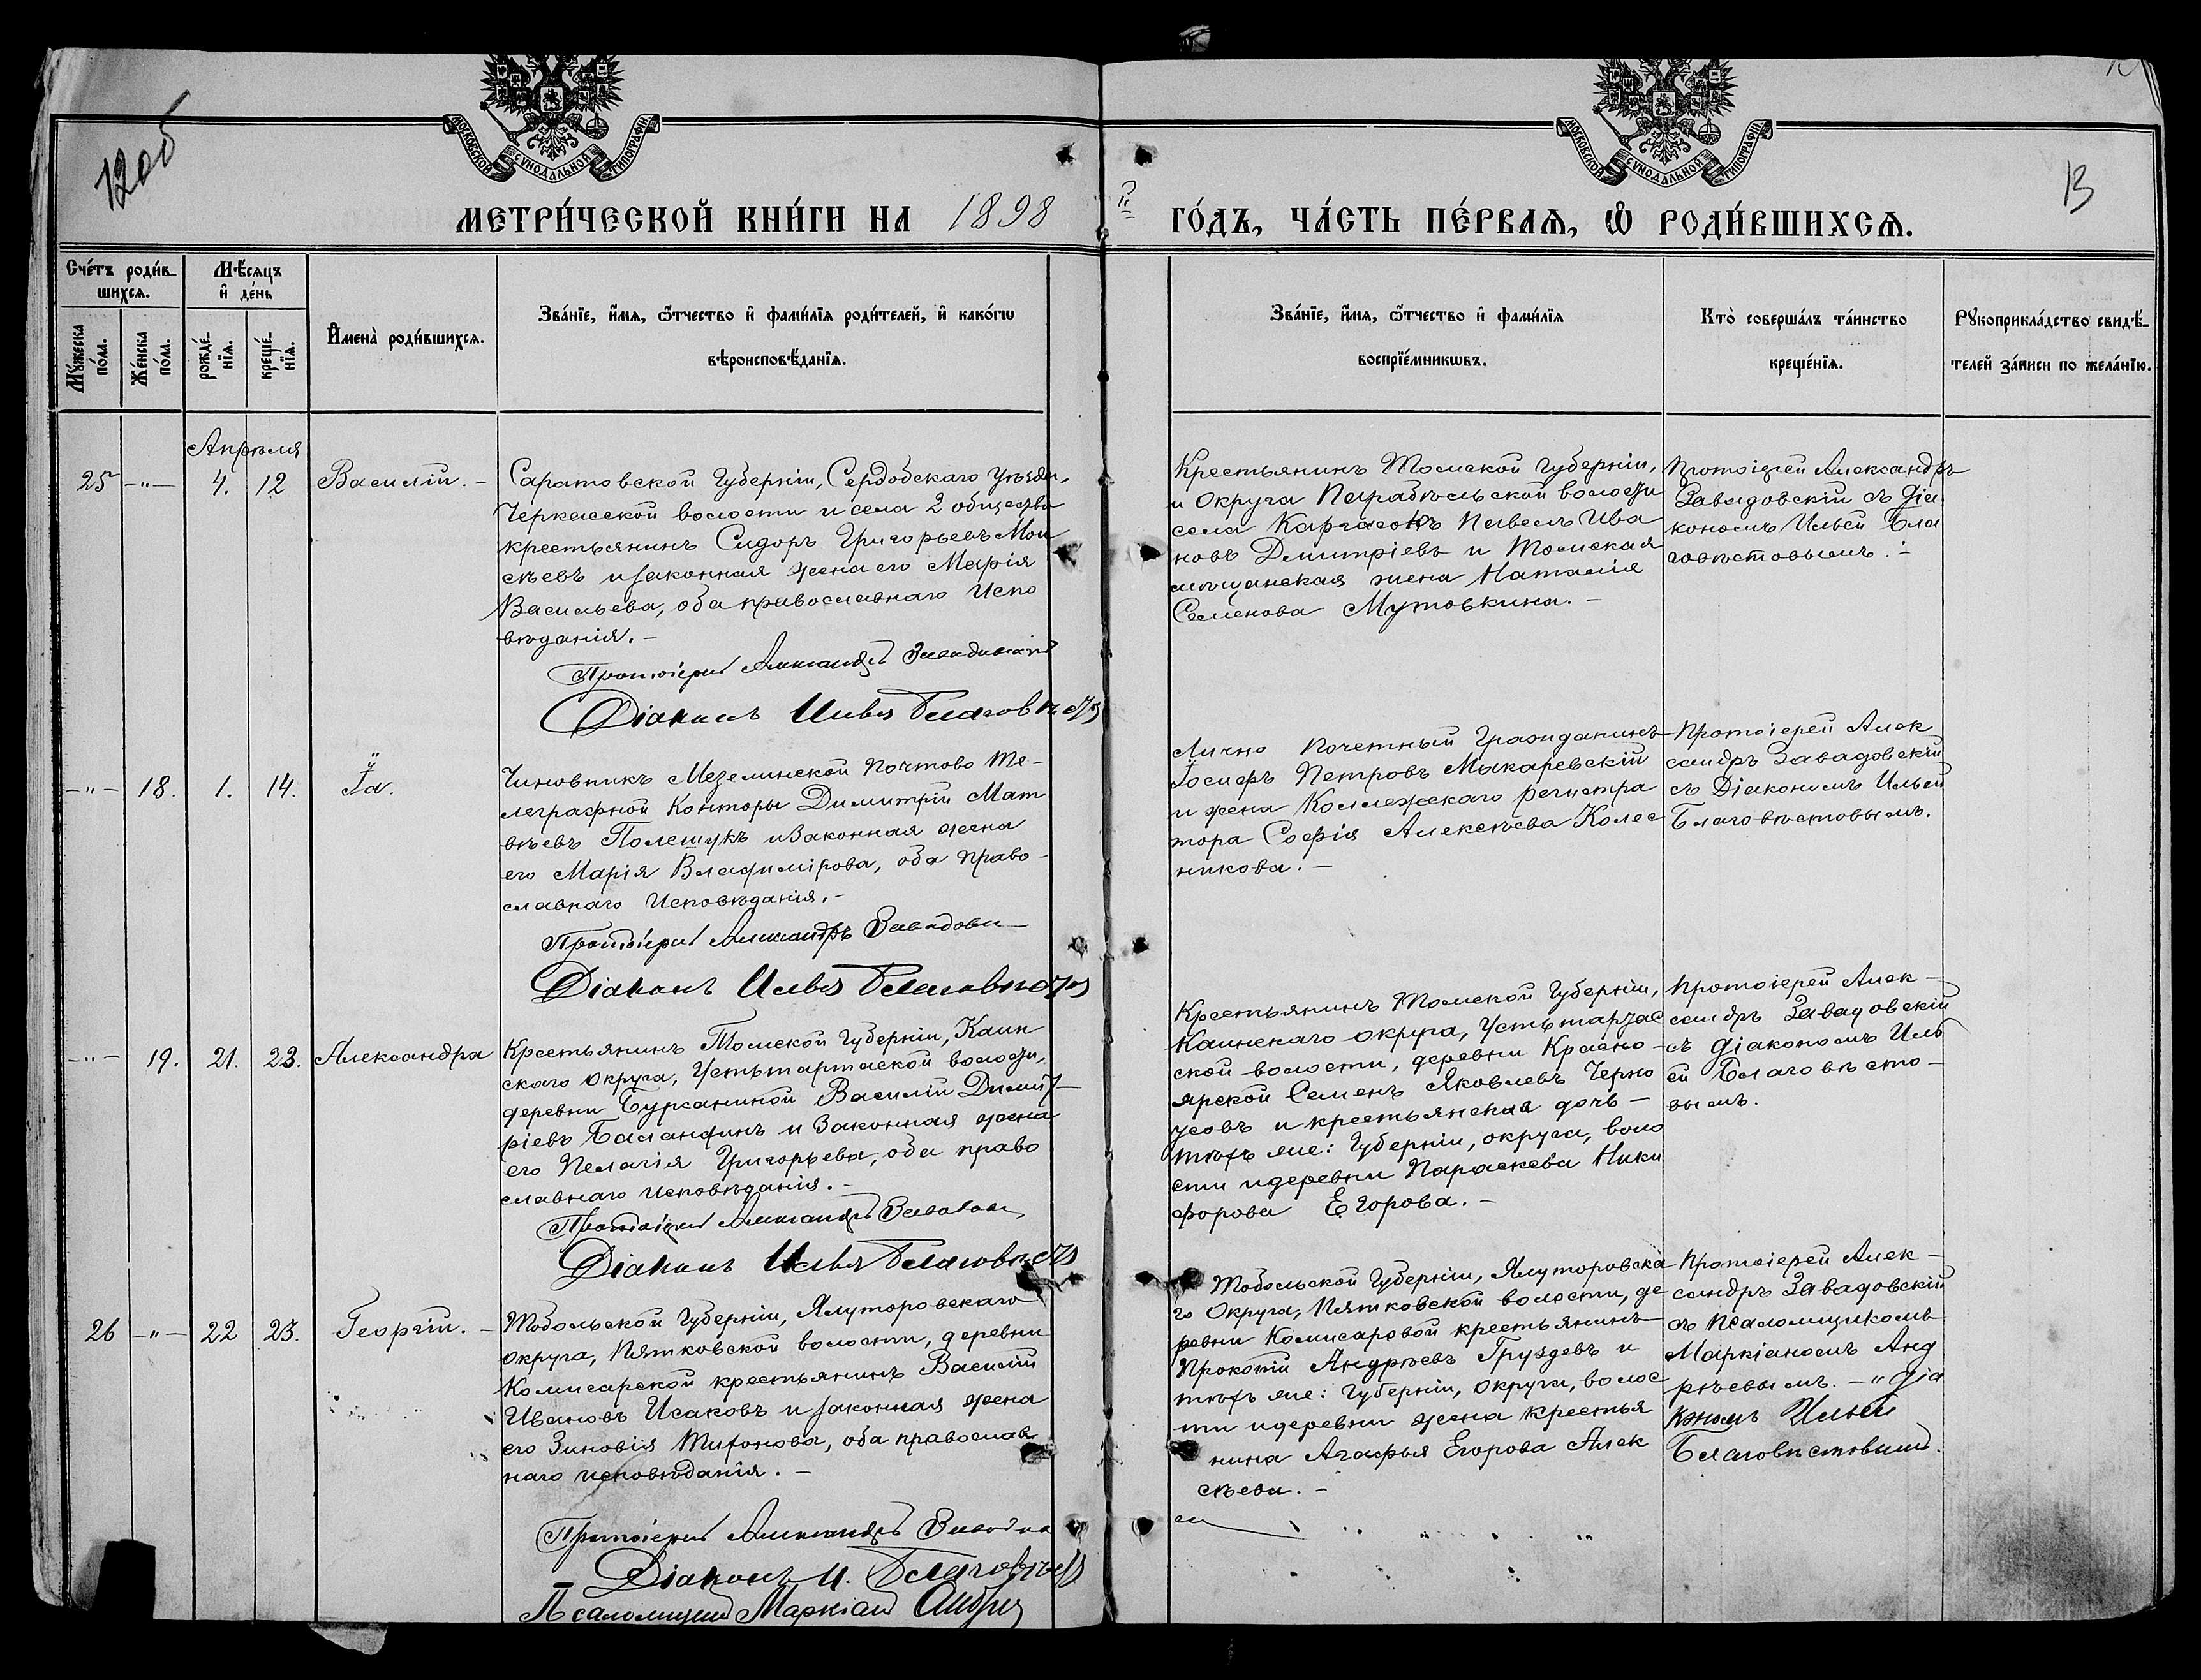 12об
МОСКОВСКОЙ СѴНОДАЛЬНОЙ ТИПОГРАФІИ
МОСКОВСКОЙ СѴНОДАЛЬНОЙ ТИПОГРАФІИ
13
МЕТРИ́ЧЕСКОЙ КНИ́ГИ НА 1898 й ГО́ДЪ, ЧА́СТЬ ПЕ́РВАѦ, Ѡ РОДИ́ВШИХСѦ.
Сче́тъ роди́в-
шихсѧ.
Мѣ́сѧцъ
и҆ де́нь
Мꙋ́жеска
по́ла.
Же́нска
по́ла.
рожде́-
нїѧ.
креще́-
нїѧ.
И҆мена̀ роди́вшихсѧ.
Зва́нїе, и҆́мѧ, ѻ҆́тчество и҆ фами́лїѧ роди́телей, и҆ како́гѡ
вѣроисповѣ́данїѧ.
Зва́нїе, и҆́мѧ, ѻ҆́тчество и҆ фами́лїѧ
воспрїе́мникѡвъ.
Кто̀ соверша́лъ та́инство
креще́нїѧ.
Рꙋкоприкла́дство свидѣ́-
телей за́писи по жела́нїю.
Апрѣля
25 -"- 4. 12 Василій. -
Саратовской Губерніи, Сердобскаго Уѣзда,
Черкасской волости и села 2 общества
крестьянинъ Сидоръ Григорьевъ Мои
сѣевъ и законная жена его Марія
Васильева, оба православнаго испо
вѣданія. -
Протоіерей Александръ Завадовскій
Діаконъ Илья Благовѣстовъ
Крестьянинъ Томской губерніи,
и Округа Парабельской волости
села Каргасокъ Павелъ Ива
новъ Дмитріевъ и Томская
мѣщанская жена Наталія
Семенова Мутовкина. -
Протоіерей Александръ
Завадовскій съ Діа
кономъ Ильей Бла
говѣстовымъ. -
-"- 18. 1. 14. Іа.
Чиновникъ Мезелинской Почтово Те-
леграфной Конторы Димитрій Мат
вѣевъ Полещукъ и Законная жена
его Марія Владимірова, оба право-
славнаго Исповѣданія. -
Протоіерей Александръ Завадовск
Діаконъ Илья Благовѣстовъ
Лично Почетный Гражданинъ
Іосифъ Петровъ Макаревскій
и жена Коллежскаго регистра
тора Софія Алексѣева Колес
никова. -
Протоіерей Алек
сандръ Завадовскій
съ Діакономъ Ильей
Благовѣстовымъ.
-"- 19. 21. 23. Александра
Крестьянинъ Томской Губерніи, Каин
скаго Округа, Устьтартаской волости,
деревни Бурканиной Василій Димит
ріевъ Баландинъ и Законная жена
его Пелагія Григорьева, оба право
славнаго исповѣданія. -
Протоіерей Александръ Завадовск
Діаконъ Илья Благовѣстовъ
Крестьянинъ Томской Губерніи,
Каинскаго округа, Устьтартас
ской волости, деревни Красно-
ярской Семенъ Яковлевъ Черно
усовъ и крестьянская дочь -
тѣхъ же: Губерніи, округа, воло
сти и деревни Параскева Ники
форова Егорова. -
Протоіерей Алек-
сандръ Завадовскій
съ Діакономъ Иль
ей Благовѣсто-
вымъ.
26 -"- 22 23. Георгій. -
Тобольской Губерніи, Ялуторовскаго
округа, Пятковской волости, деревни
Комисарской крестьянинъ Василій
Ивановъ Исаковъ и законная жена
его Зиновія Тихонова, оба православ
наго исповѣданія. -
Протоіерей Александръ Завадов
Діаконъ И. Благовѣстовъ
Псаломщикъ Маркіанъ Андре
Тобольской Губерніи, Ялуторовска
го Округа, Пятковской волости, де
ревни Комисаровой крестьянинъ
Прокопій Андрѣевъ Груздевъ и
тѣхъ же: Губерніи, округа, волос
ти и деревни жена крестья
нина Агафья Егорова Алек
сѣева. -
Протоіерей Алек-
сандръ Завадовскій
съ Псаломщикомъ
Маркіаномъ Анд
рѣевымъ. - "Діа
кономъ Ильей
Благовѣстовымъ.